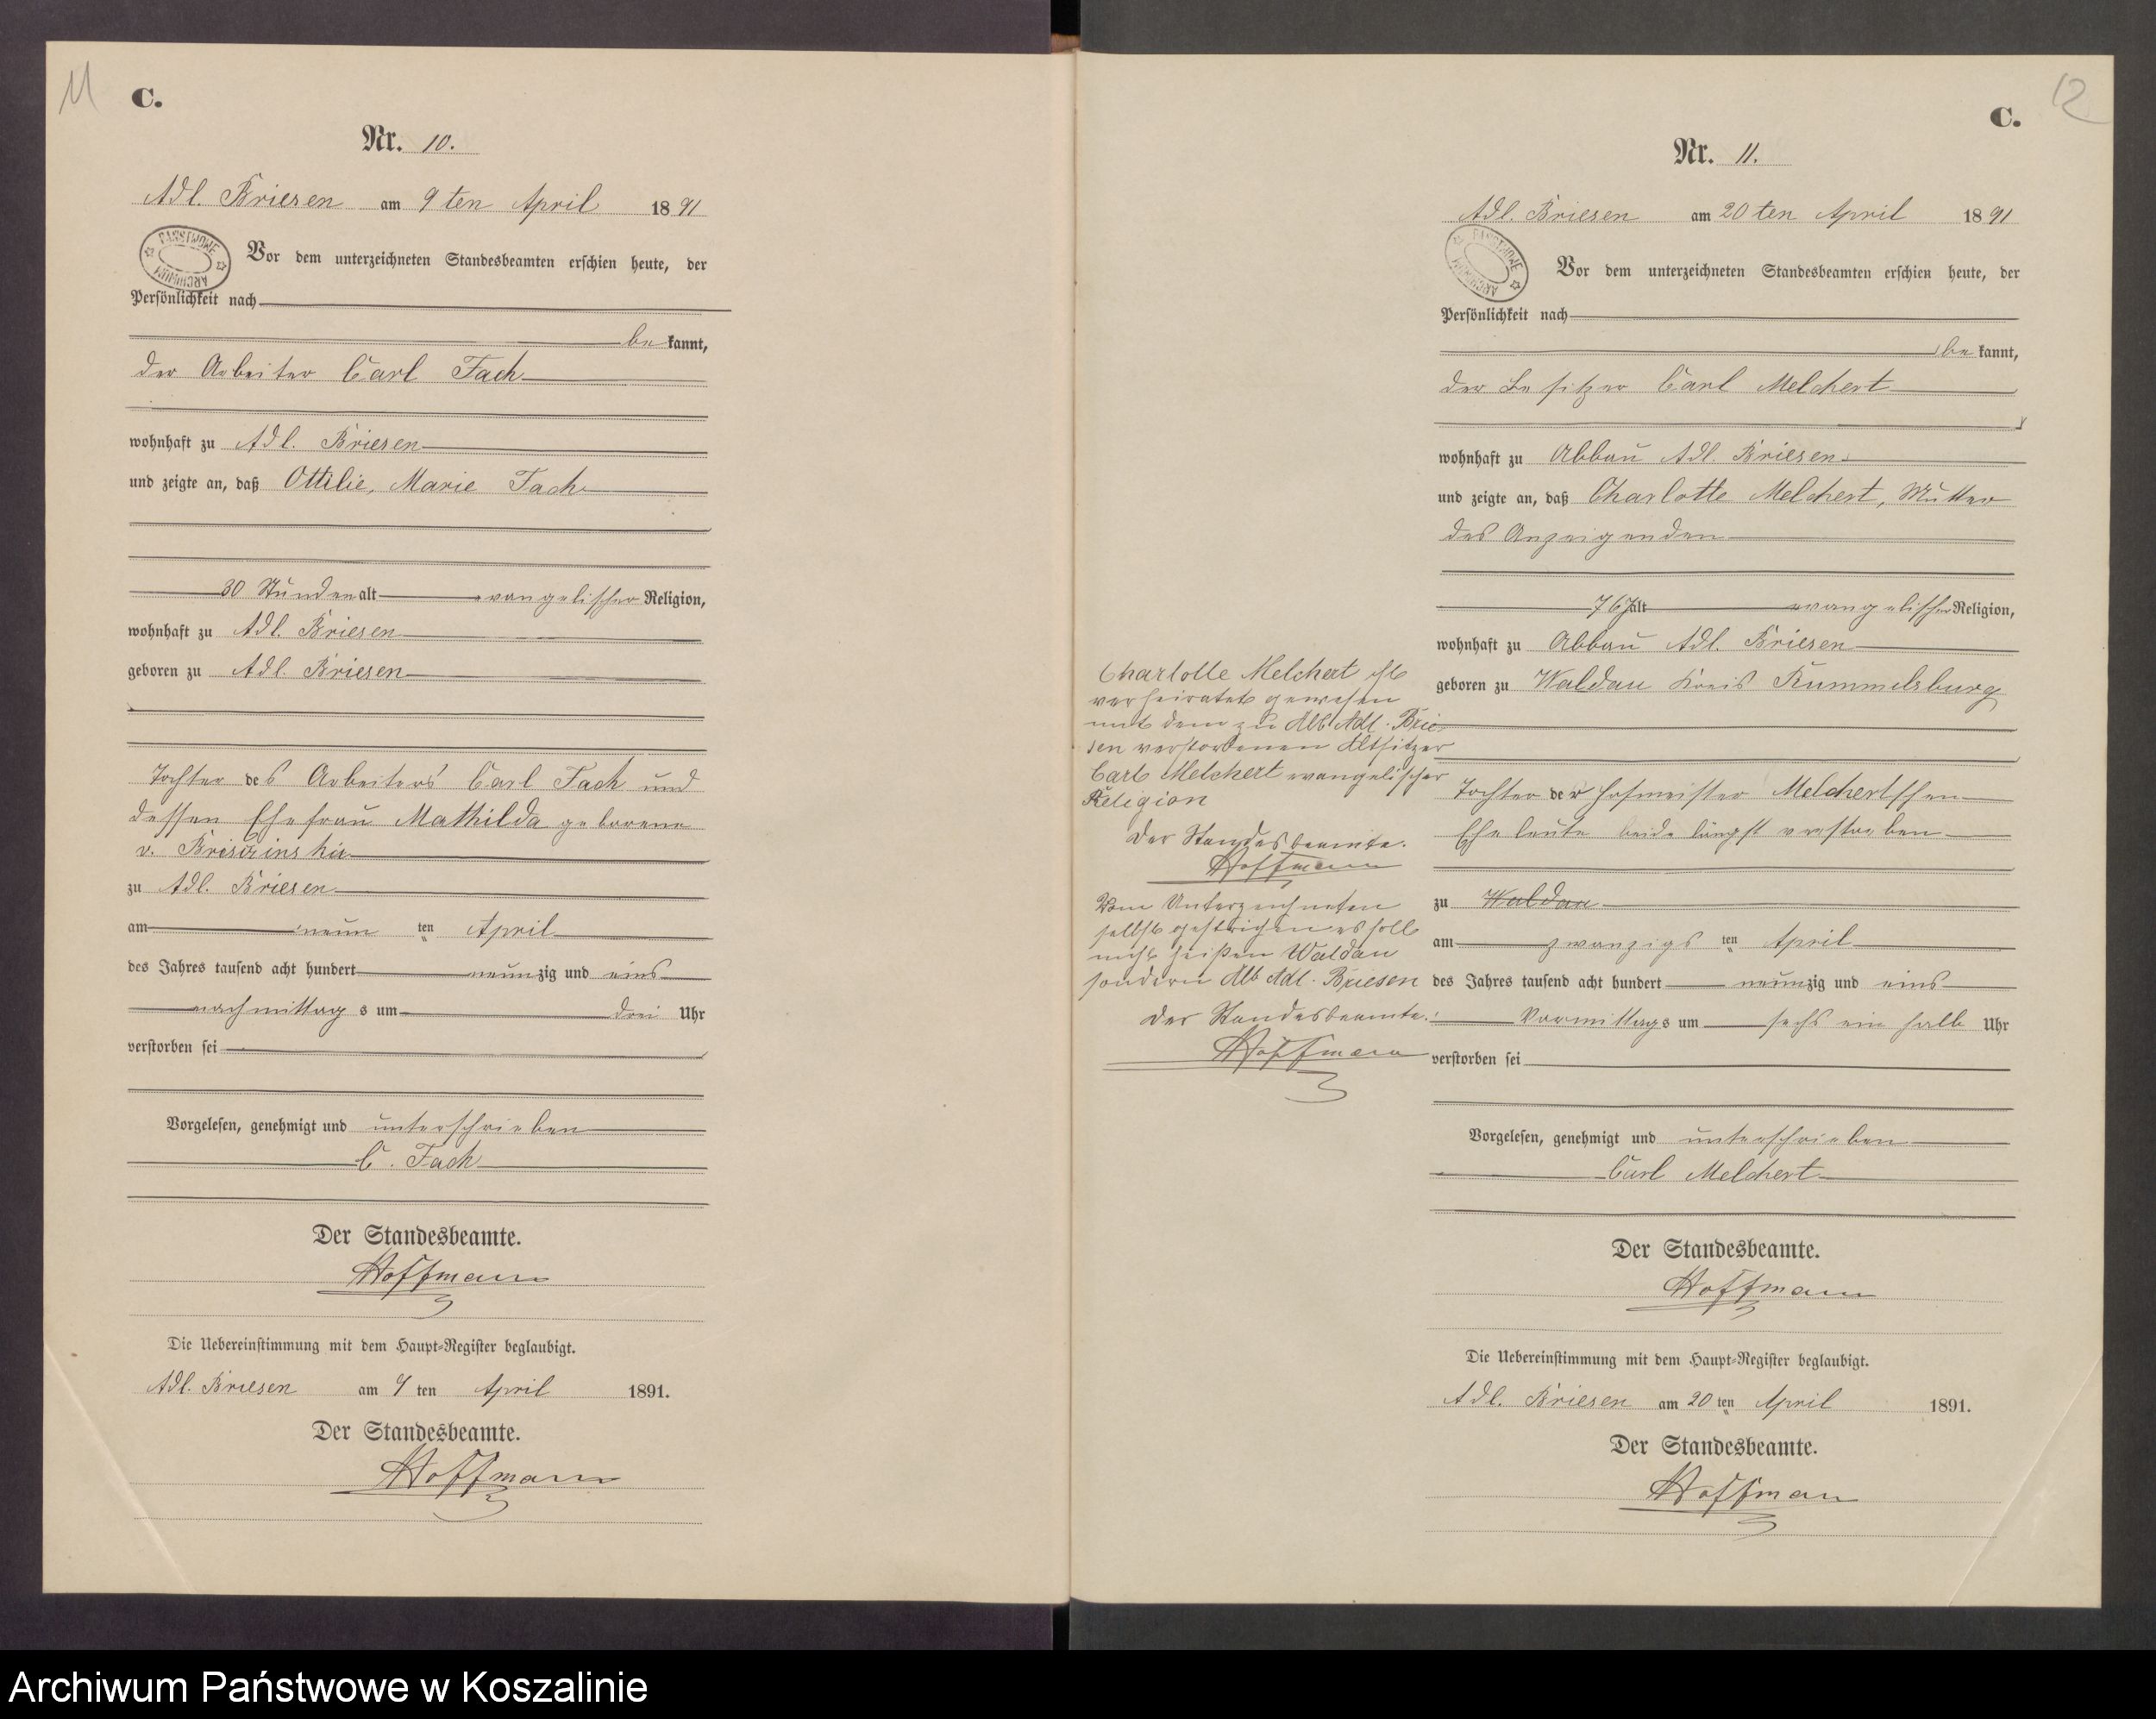 11
C.
Nr. 10.
Adl. Briesen am 9 ten April 1891
PAŃSTWOWE ARCHIWUM
Vor dem unterzeichneten Standesbeamten erschien heute, der
Persönlichkeit nach
be kannt,
der Arbeiter Carl Fach
wohnhaft zu Adl. Briesen
und zeigte an, daß Ottilie, Marie Fach
30 Stunden alt evangelischer Religion,
wohnhaft zu Adl. Briesen
geboren zu Adl. Briesen
Tochter des Arbeiters Carl Fach und
dessen Ehefrau Mathilda geborene
v.
zu Adl. Briesen
am neun ten April
des Jahres tausend acht hundert neunzig und eins
nachmittag s um drei Uhr
verstorben sei
Vorgelesen, genehmigt und unterschrieben
C. Fach
Der Standesbeamte.
Hoffmann
Die Uebereinstimmung mit dem Haupt-Register beglaubigt.
Adl. Briesen am 9 ten April 1891.
Der Standesbeamte.
Hoffmann
12
C.
Nr. 11.
Adl. Briesen am 20 ten April 1891
PAŃSTWOWE ARCHIWUM
Vor dem unterzeichneten Standesbeamten erschien heute, der
Persönlichkeit nach
be kannt,
der Besitzer Carl Melchert
wohnhaft zu Abbau Adl. Briesen
und zeigte an, daß Charlotte Melchert, Mutter
des Anzeigenden
76 J alt evangelischer Religion,
wohnhaft zu Abbau Adl. Briesen
geboren zu Waldau Kreis Rummelsburg
Tochter der Hofmeister Melchertschen
Eheleute beide längst verstorben
zu Waldau
am zwanzigs ten April
des Jahres tausend acht hundert neunzig und eins
Vormittags um sechs ein halb Uhr
verstorben sei
Vorgelesen, genehmigt und unterschrieben
Carl Melchert
Der Standesbeamte.
Hoffmann
Die Uebereinstimmung mit dem Haupt-Register beglaubigt.
Adl. Briesen am 20 ten April 1891.
Der Standesbeamte.
Hoffmann
Charlotte Melchert ist
verheiratet gewesen
mit dem zu Abb Adl. Brie-
sen verstorbenen Altsitzer
Carl Melchert evangelischer
Religion
Der Standesbeamte.
Hoffmann
Vom Unterzeichneten
selbst gestrichen es soll
nicht heißen Waldau
sondern Abb Adl. Briesen
Der Standesbeamte.
Hoffmann
Archiwum Państwowe w Koszalinie